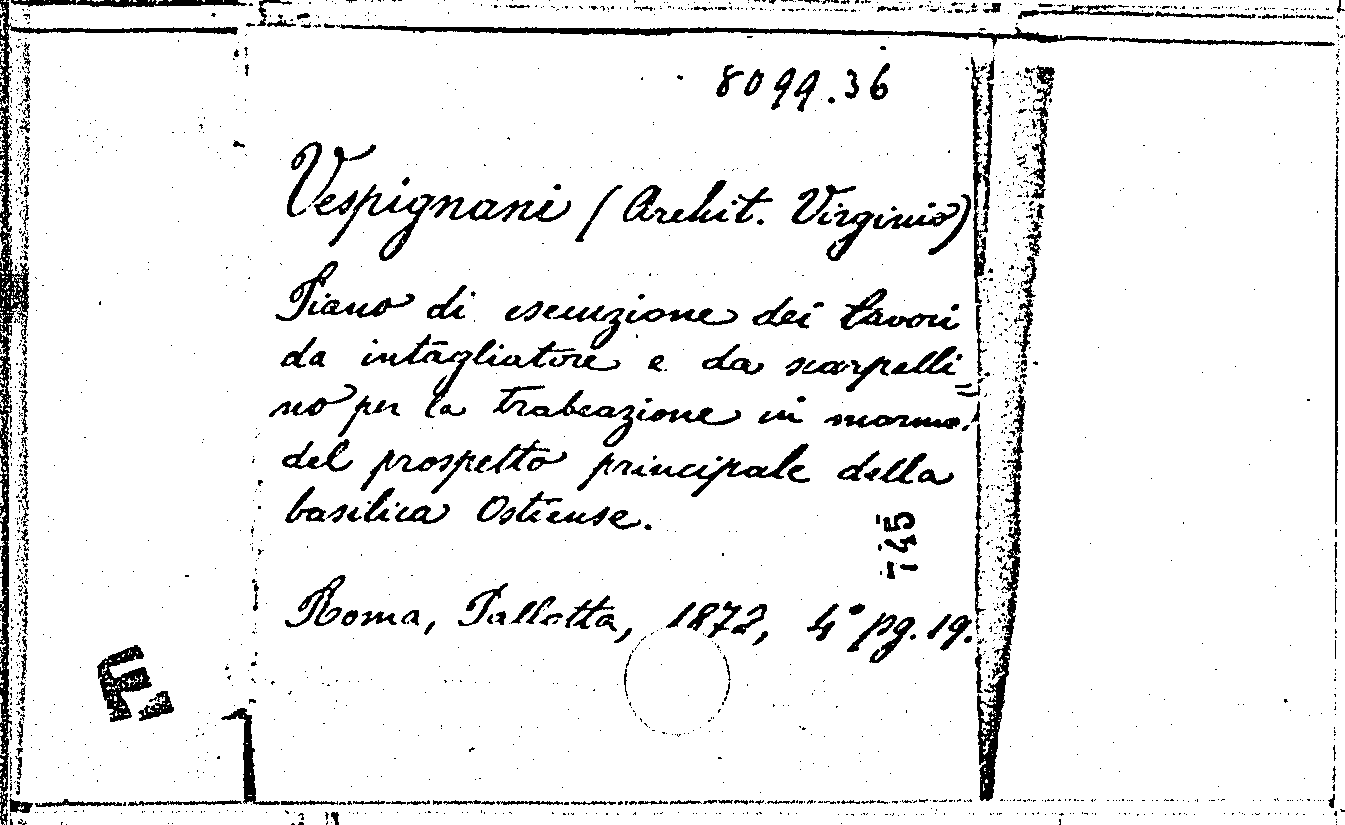 8099.36
Vespignani (Archit. Virginio)
Piano di esecuzione dei lavori
da intagliatore e da scarpelli=
no per la trabeazione in marmo
del prospetto principale della
basilica Ostiense.
745
Roma, Pallotta, 1872, 4° pg. 19.
F.